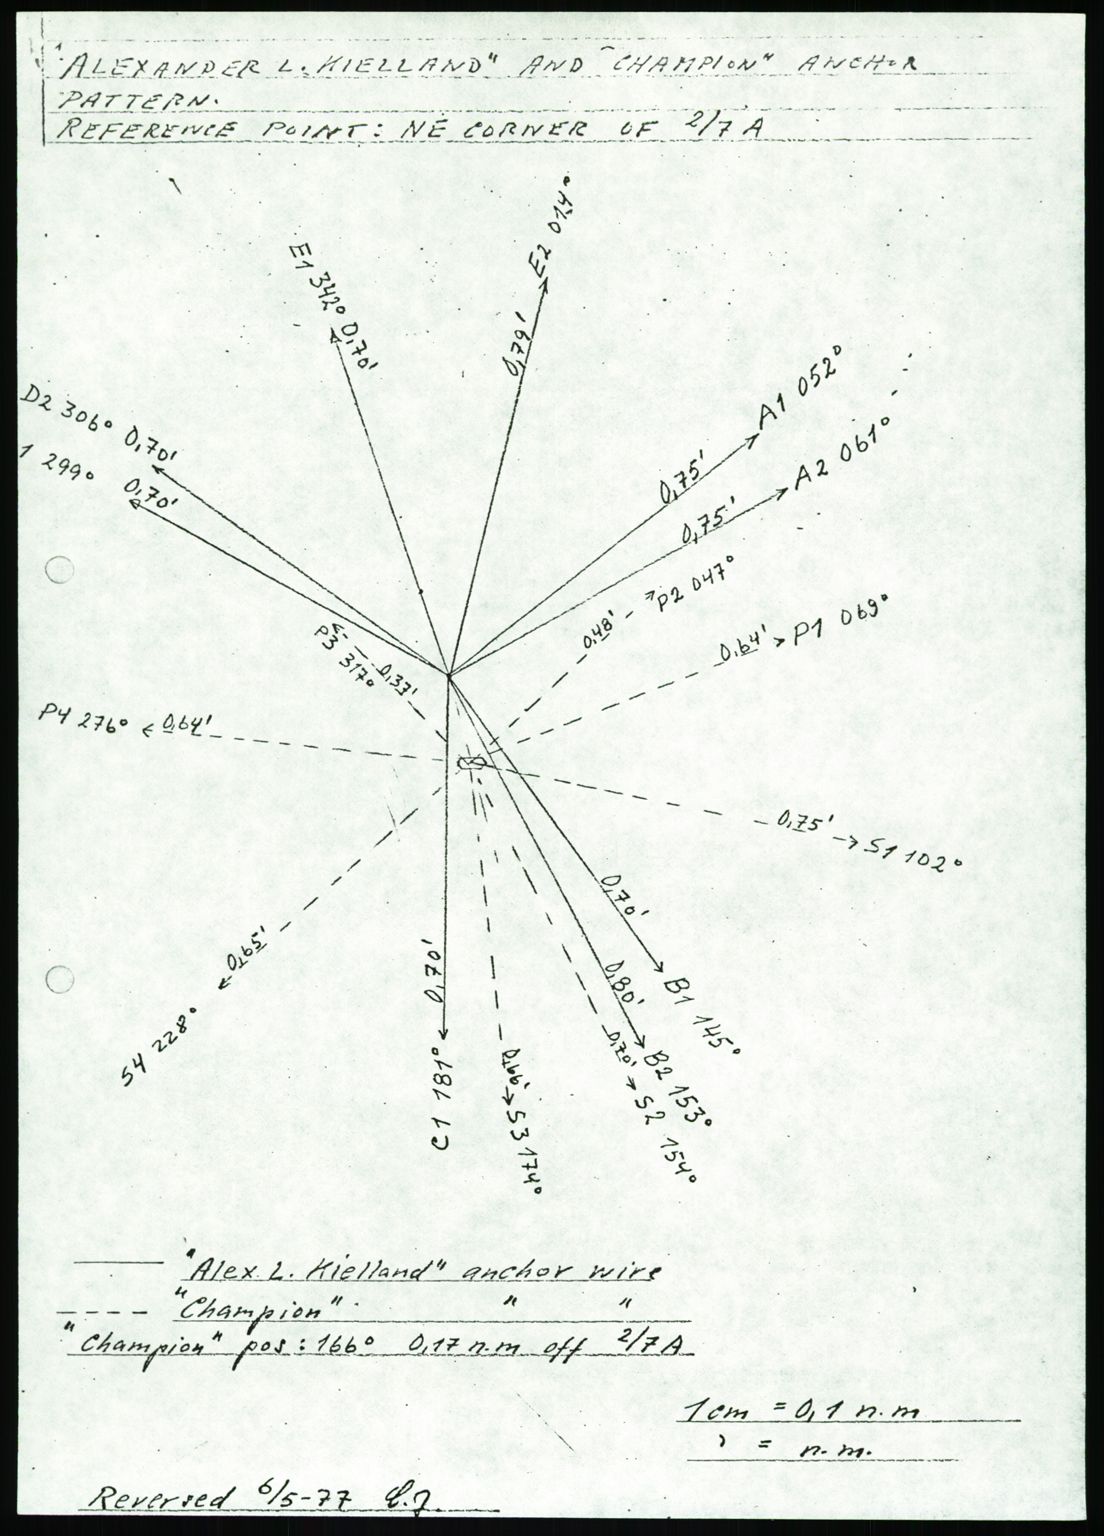 "ALEXANDER L. KIELLAND" AND "CHAMPION" ANCHOR
PATTERN.
REFERENCE POINT: NE CORNER OF 2/7 A
E2 014°
0,79'
E1 342° 0,70'
A1 052°
0,75'
A2 061°
0,75'
D2 306° 0,70'
1 299° 0,70'
P2 047°
0,48'
P1 069°
0,64'
P3 317°
0,37'
P4 276°
0,64'
0,75'
S1 102°
0,70'
B1 145°
0,80'
B2 153°
0,70'
S2 154°
0,65'
S4 228°
0,70'
C1 181°
0,66'
S3 174°
"Alex L. Kielland" anchor wire
"Champion" " "
"Champion" pos: 166° 0,17 n.m off 2/7 A
1 cm = 0,1 n.m
' = n.m.
Reversed 6/5-77